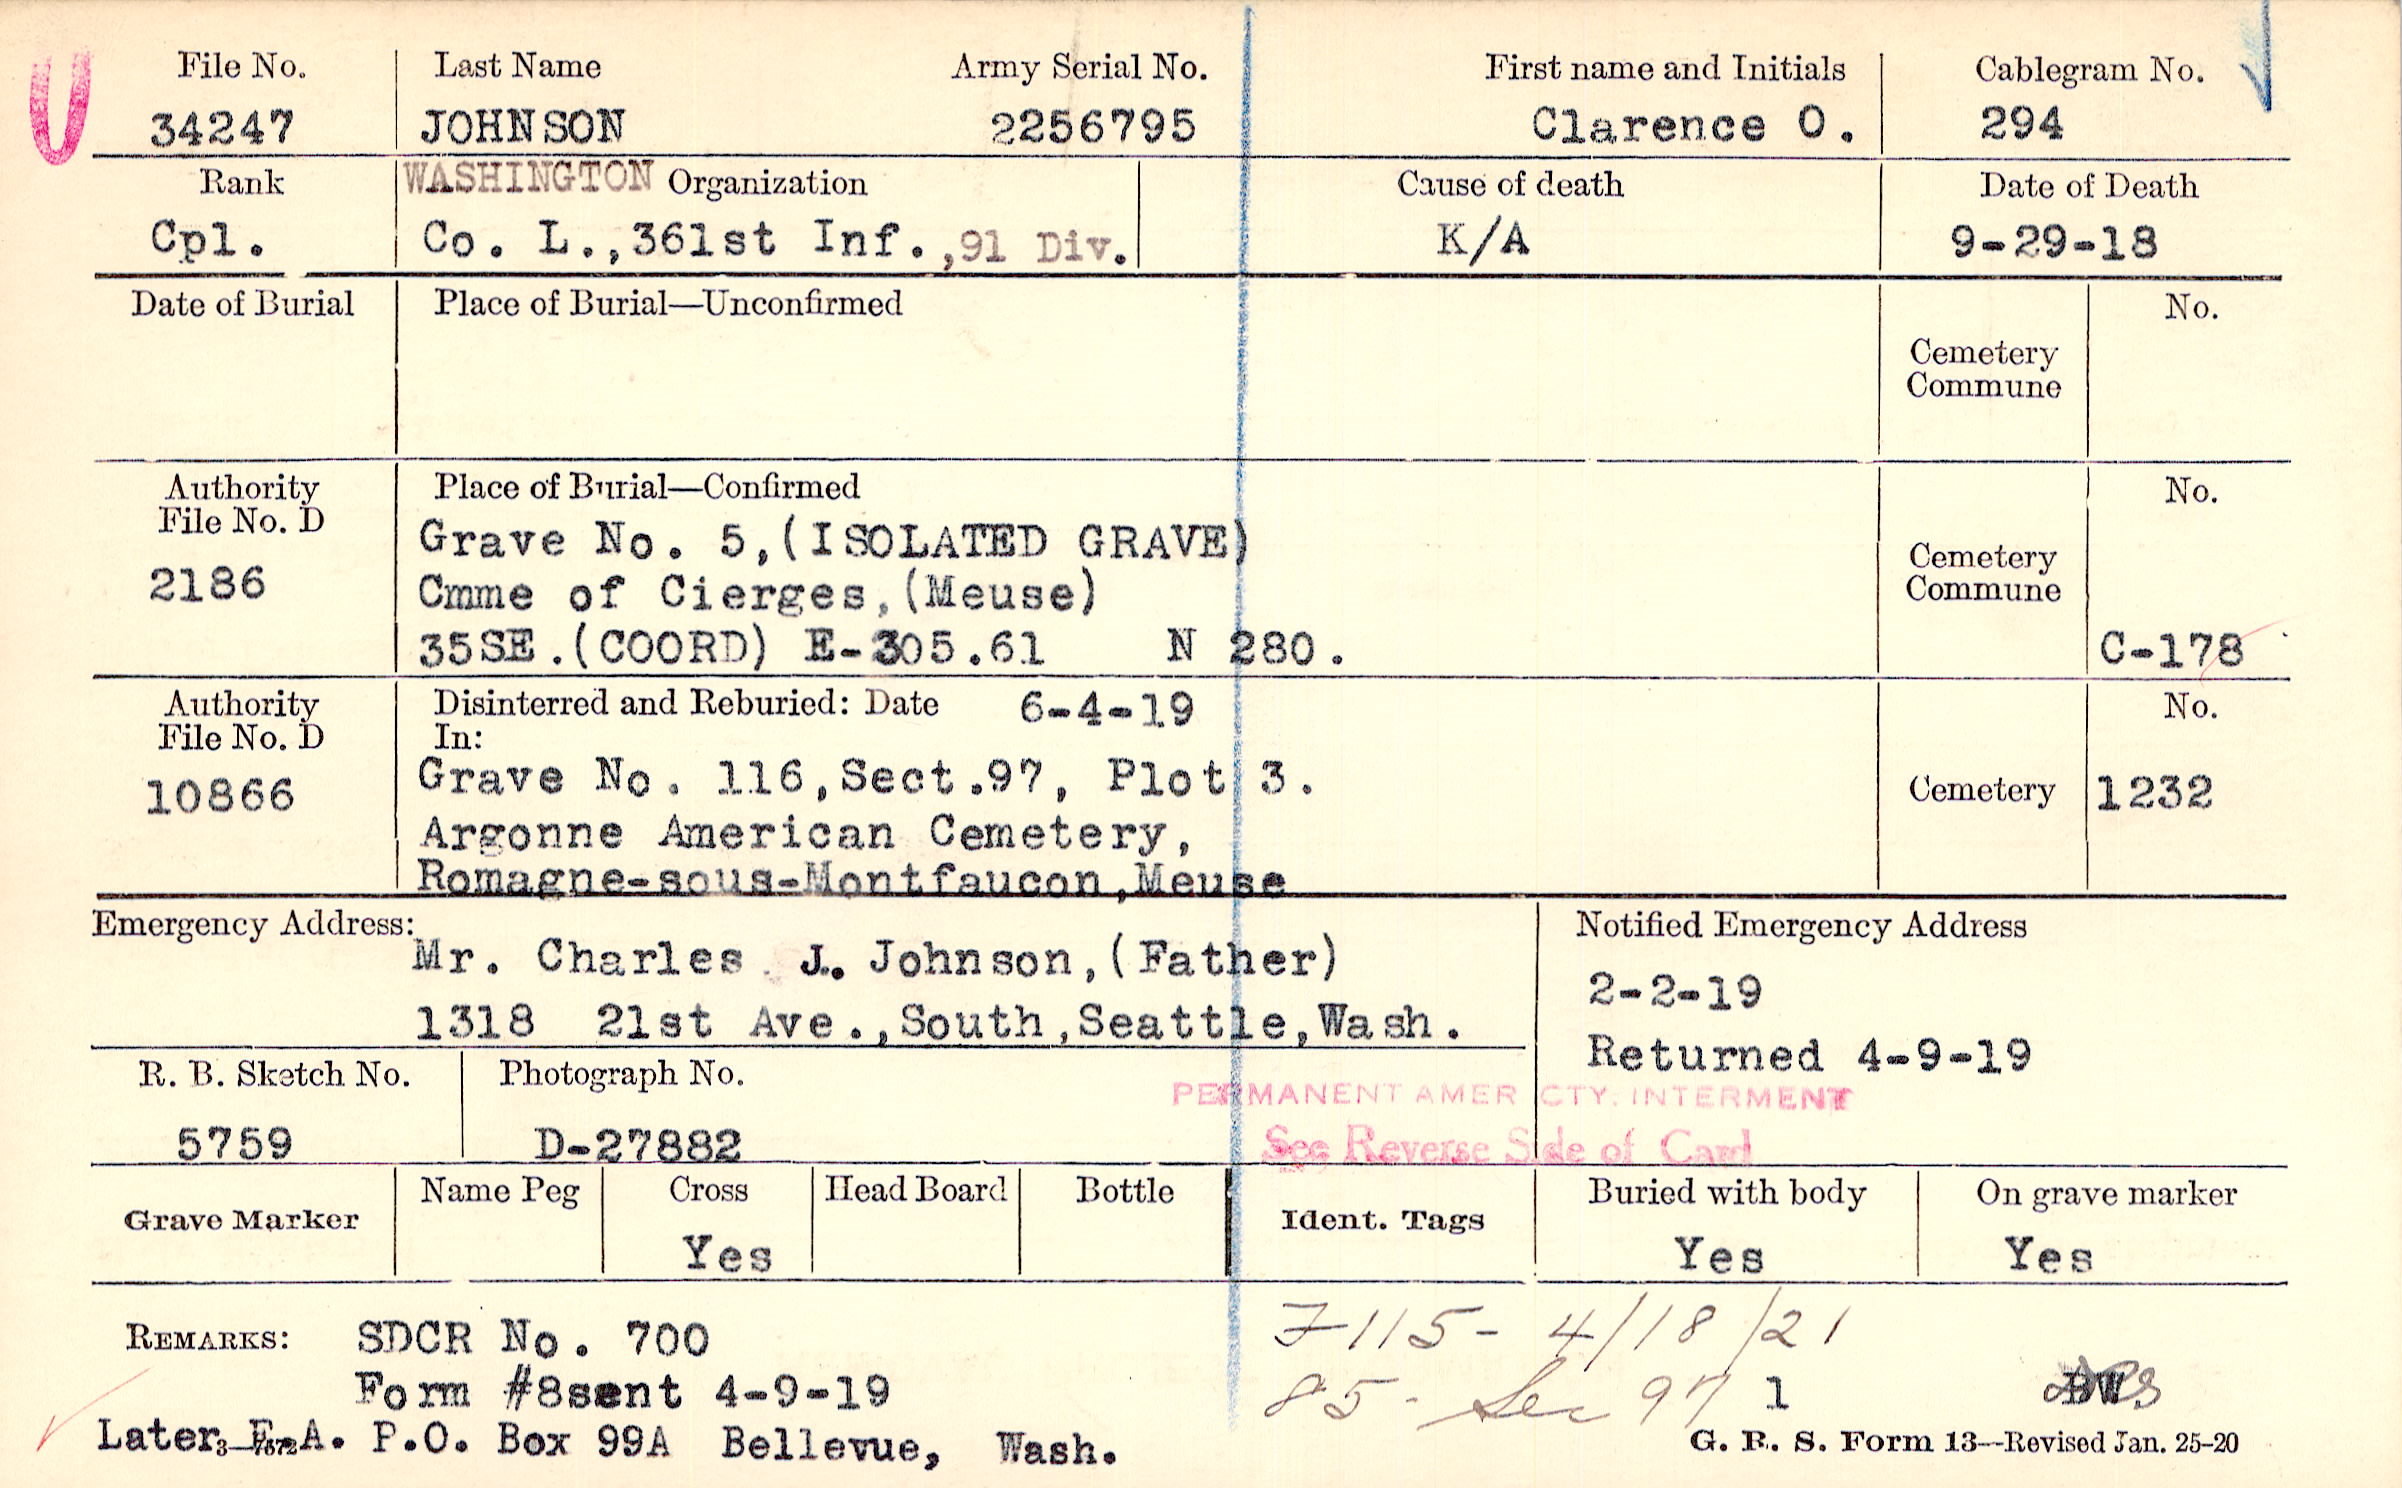 File No. Last Name Army Serial No. First name and Initials Cablegram No.
34247 JOHNSON 2256795 Clarence O. 294
Rank WASHINGTON Organization Cause of death Date of Death
Cpl. Co. L.,361st Inf.,91 Div. K/A 9-29-18
Date of Burial Place of Burial—Unconfirmed No.
Cemetery
Commune
Authority Place of Burial—Confirmed No.
File No. D
Grave No. 5,(ISOLATED GRAVE)
2186 Cmme of Cierges,(Meuse) Cemetery
Commune
35SE.(COORD) E-305.61 N 280. C-178
Authority Disinterred and Reburied: Date 6-4-19 No.
File No. D In:
10866 Grave No. 116,Sect.97, Plot 3. Cemetery 1232
Argonne American Cemetery,
Romagne-sous-Montfaucon,Meuse
Emergency Address: Notified Emergency Address
Mr. Charles J. Johnson,(Father) 2-2-19
1318 21st Ave.,South,Seattle,Wash.
Returned 4-9-19
R. B. Sketch No. Photograph No.
PERMANENT AMER CTY. INTERMENT
5759 D-27882 See Reverse Side of Card
Name Peg Cross Head Board Bottle Buried with body On grave marker
Grave Marker Ident. Tags
Yes Yes Yes
REMARKS: SDCR No. 700 7115- 4/18/21
Form #8sent 4-9-19 85- Sec 97 1
Later E.A. P.O. Box 99A Bellevue, Wash. G. R. S. Form 13—Revised Jan. 25-20